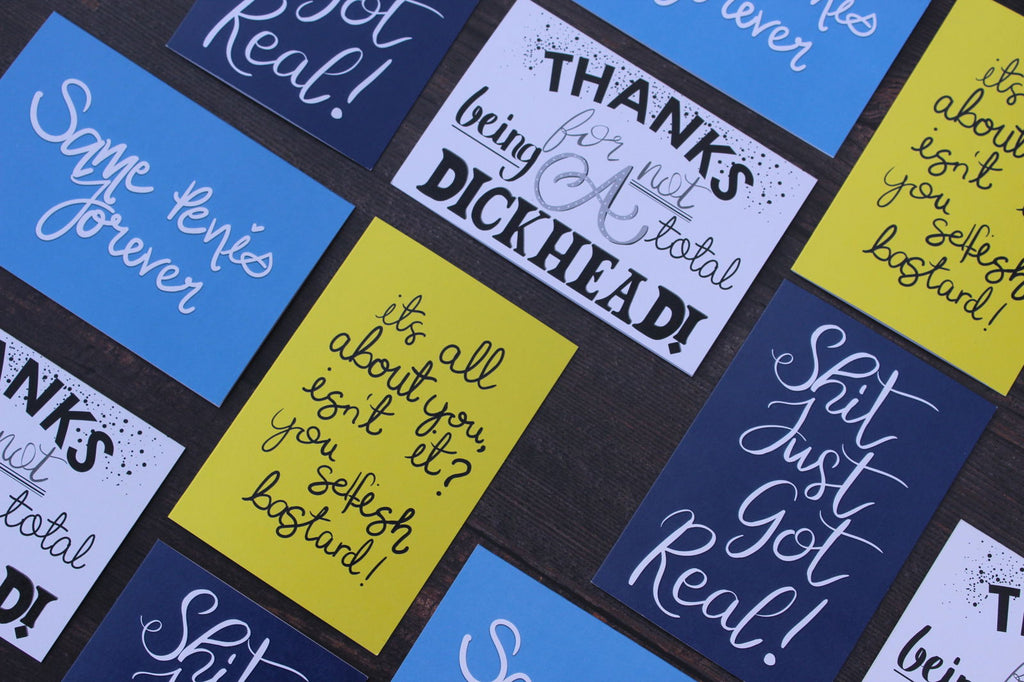 Got
Real!
THANKS
for not
being A total
DICKHEAD!
forever
its
about
isn't
you
selfish
bastard!
Same penis
forever
its all
about you,
isn't it?
you
selfish
bastard!
Shit
Just
Got
Real!
ANKS
not
total
D!
Shit
T
being